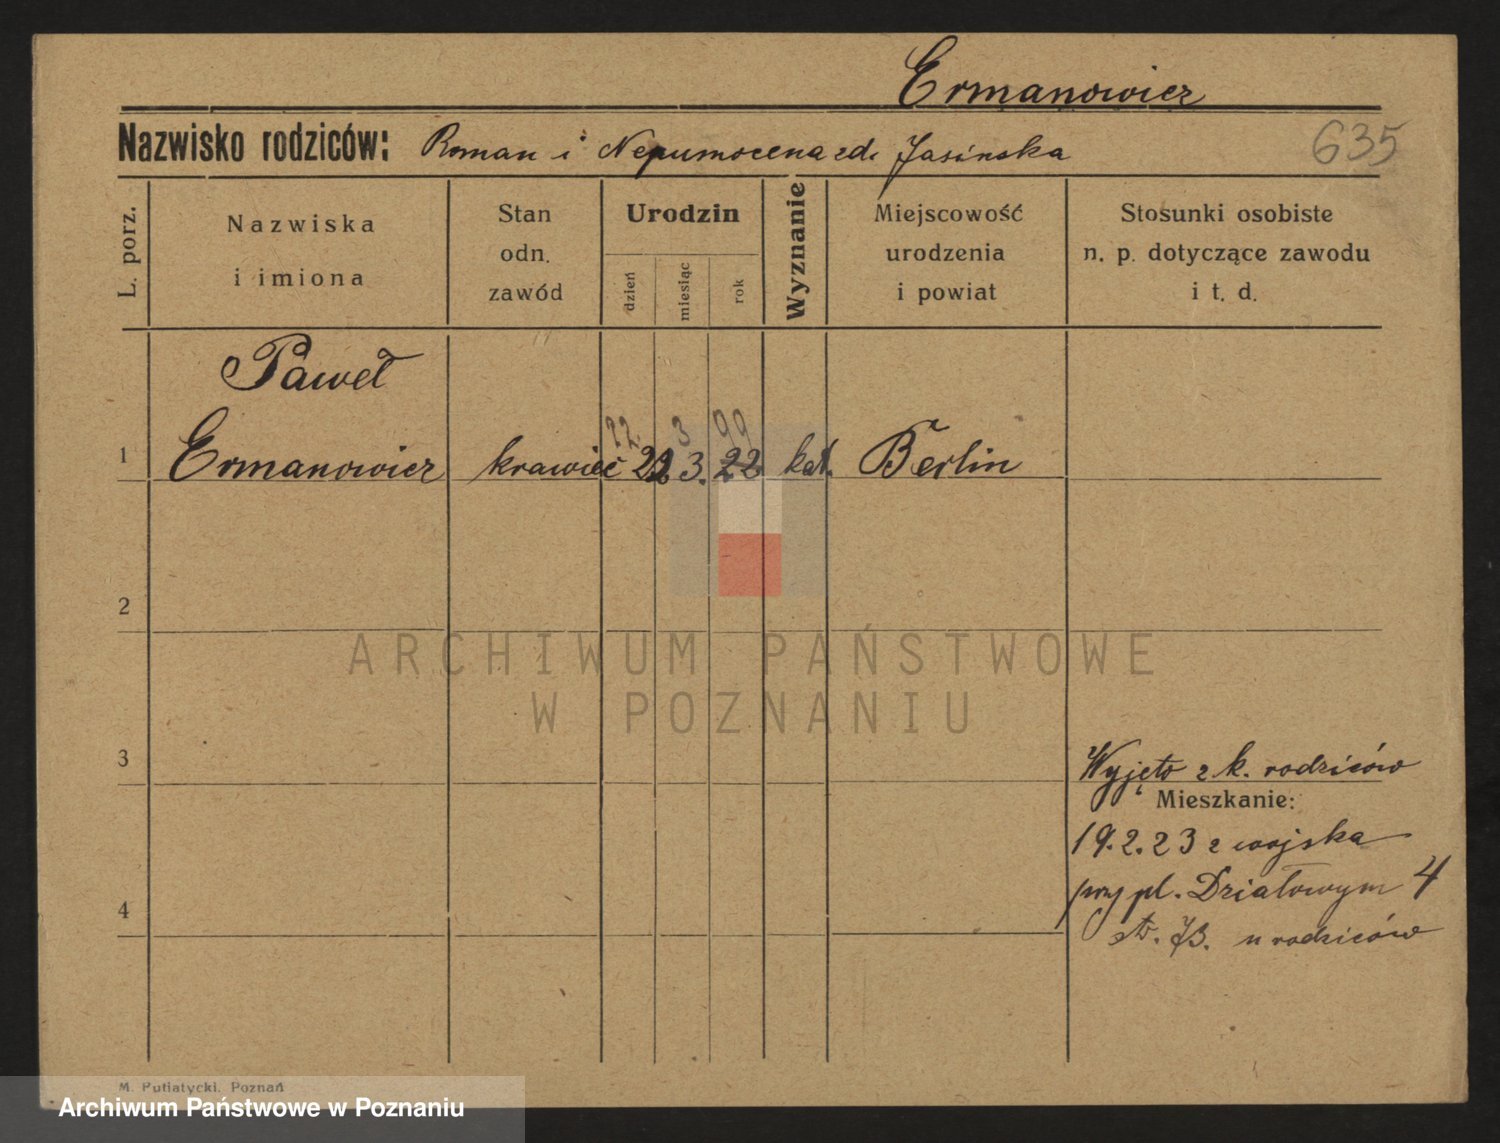 Ermanowicz
Nazwisko rodziców: Roman i Nepumocena zd. Jasińska
635
L. porz.
Nazwiska
i imiona
Stan
odn.
zawód
Urodzin
dzień
miesiąc
rok
Wyznanie
Miejscowość
urodzenia
i powiat
Stosunki osobiste
n. p. dotyczące zawodu
i t. d.
Paweł
22. 3 99
1 Ermanowicz krawiec 22 3. 22 kat. Berlin
2
ARCHIWUM PAŃSTWOWE
W POZNANIU
3
Wyjęto z k. rodziców
Mieszkanie:
19.2.23 z wojska
przy pl. Działowym 4
4
u rodziców
M. Putiatycki, Poznań
Archiwum Państwowe w Poznaniu